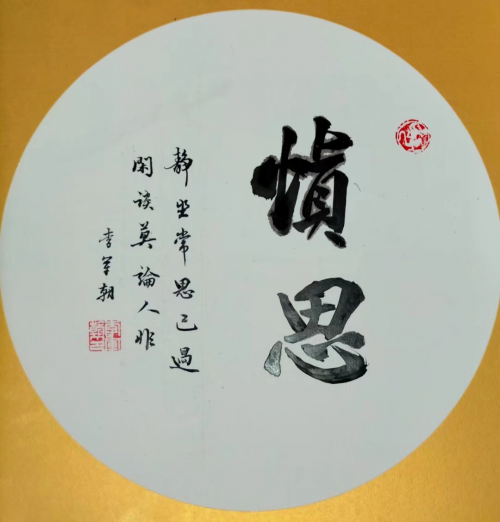 慎思
静坐常思己過
閑談莫論人非
李軍朝